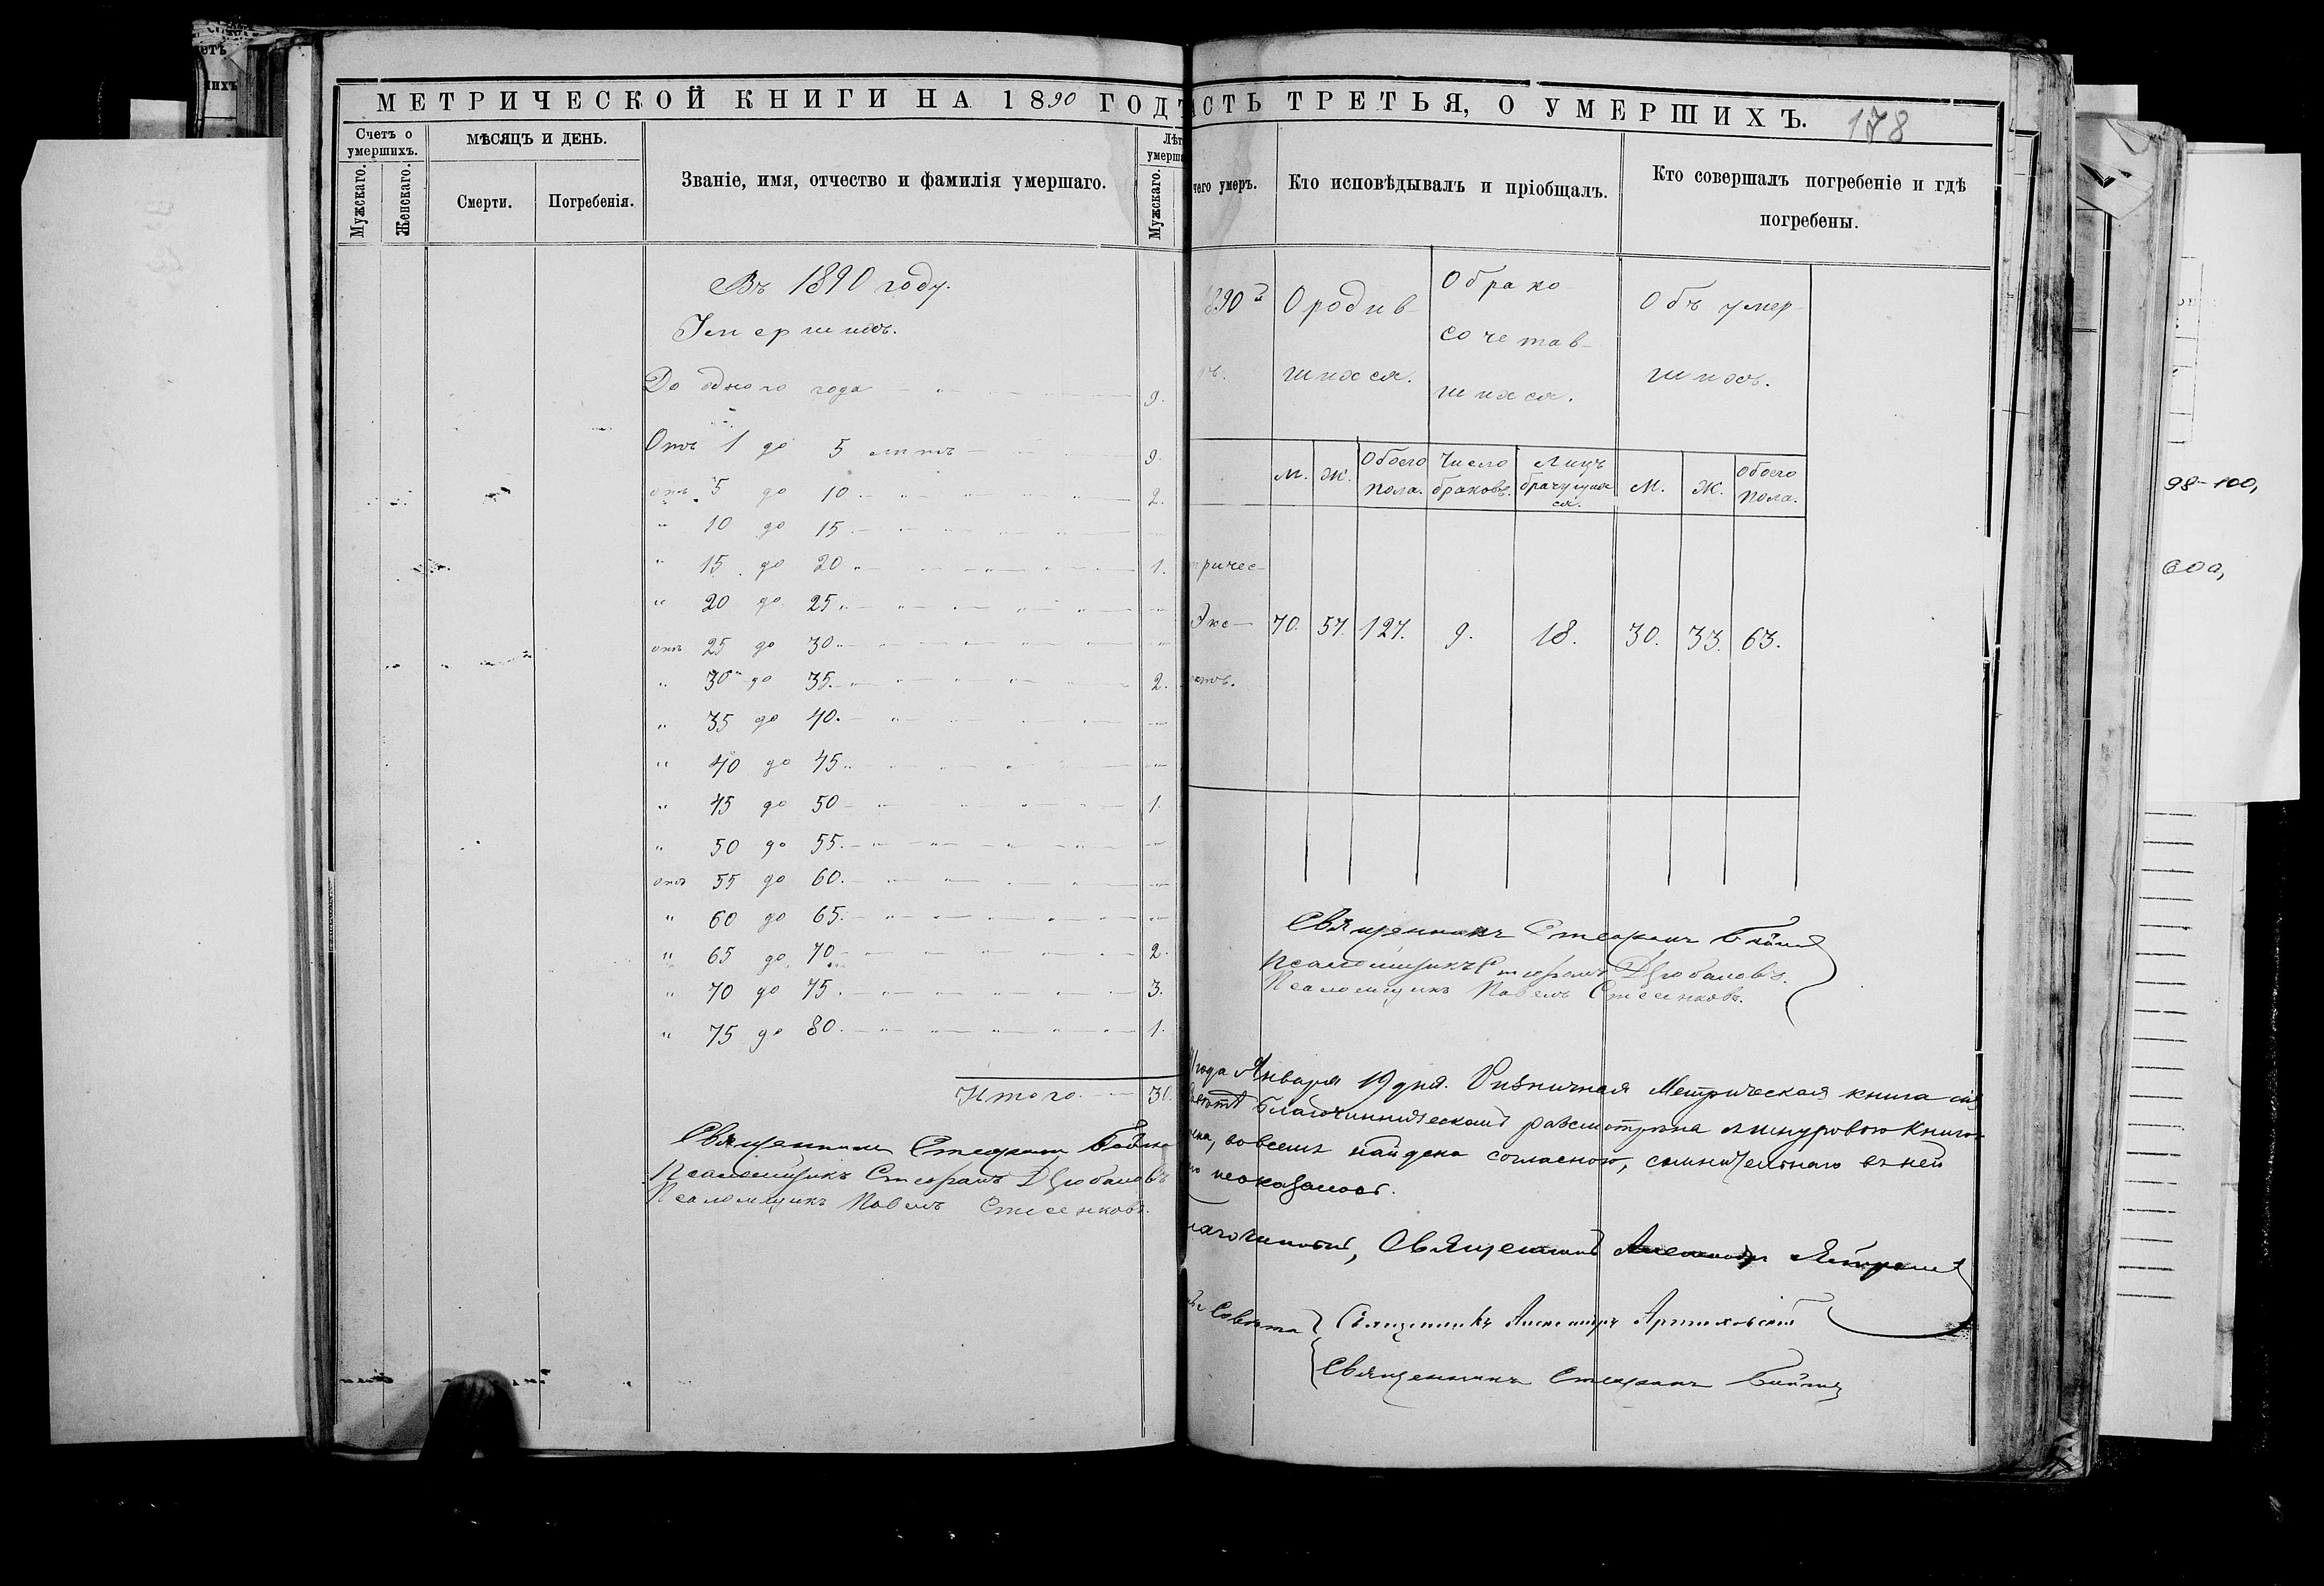 МЕТРИЧЕСКОЙ КНИГИ НА 1890 ГОДЪ
Счетъ о умершихъ.
Мужскаго.
Женскаго.
МѢСЯЦЪ И ДЕНЬ.
Смерти.
Погребенія.
Званіе, имя, отчество и фамилія умершаго.
Лѣт
умерша
Мужскаго.
Въ 1890 году.
Умершихъ.
До одного года 9.
Отъ 1 до 5 лѣтъ 9.
отъ 5 до 10 2.
" 10 до 15
" 15 до 20 1.
" 20 до 25
отъ 25 до 30
" 30 до 35 2.
" 35 до 40
" 40 до 45
" 45 до 50 1.
" 50 до 55
отъ 55 до 60
" 60 до 65
" 65 до 70 2.
" 70 до 75 3.
" 75 до 80 1.
Итого 30.
Священникъ Стефанъ
Псаломщикъ Стефанъ Дзюбановъ
Псаломщикъ Павелъ
АСТЬ ТРЕТЬЯ, О УМЕРШИХЪ.
178
чего умеръ.
Кто исповѣдывалъ и пріобщалъ.
Кто совершалъ погребеніе и гдѣ
погребены.
О родив-
шихся.
О брако-
сочетав-
шихся.
Объ умер-
шихъ.
М. Ж. Обоего пола. Число браковъ. Лицъ М. Ж. Обоего пола.
тричес-
Экс-
70. 57. 127. 9. 18. 30. 33. 63.
Священникъ Стефанъ
Псаломщикъ Стефанъ Дзюбановъ.
Псаломщикъ Павелъ
года Января 19 дня. Ризничная Метрическая книга сія
благочинническомъ разсмотрѣна
вовсемъ найдена согласною, сомнительнаго въ ней
неоказалось.
Священникъ
Совѣта
Священникъ Александръ
Священникъ Стефанъ
98-100,
600,